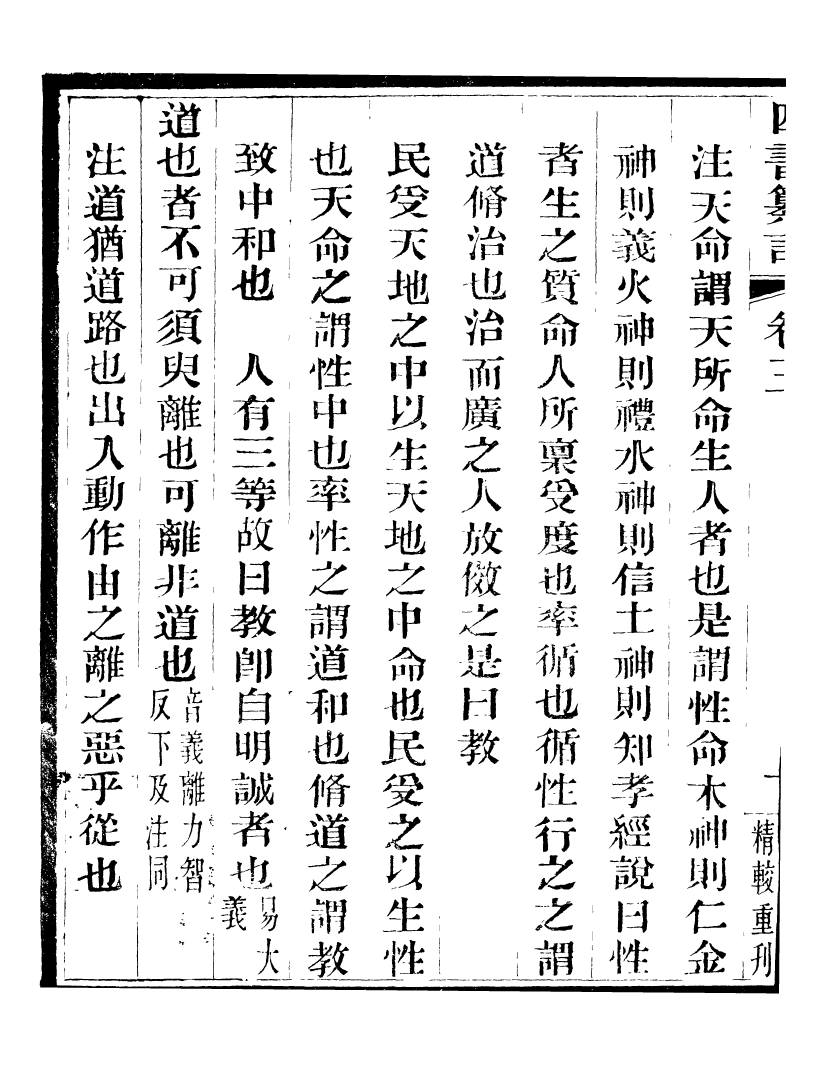 四書纂言 卷三 一 精較重刊
注天命謂天所命生人者也是謂性命木神則仁金
神則義火神則禮水神則信土神則知孝經說曰性
者生之質命人所稟受度也率循也循性行之之謂
道脩治也治而廣之人放傚之是曰教
民受天地之中以生天地之中命也民受之以生性
也天命之謂性中也率性之謂道和也脩道之謂教
致中和也　人有三等故曰教卽自明誠者也易大義
道也者不可須臾離也可離非道也音義離力智反下及注同
注道猶道路也出入動作由之離之惡乎從也